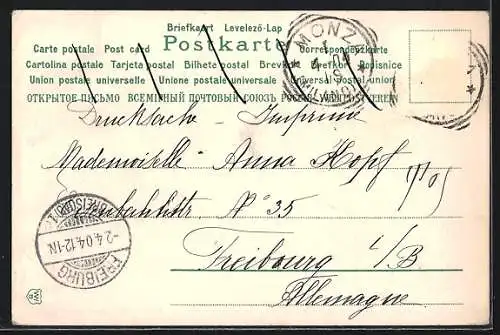 Briefkaart Levelező-Lap
Postkarte
Carte postale Post card Correspondenzkarte
Cartolina postale Tarjeta postal Bilhete postal Brevkort Brefkort Dopisnice
Union postale universelle Unione postale universale Universal postal union
ОТКРЫТОЕ ПИСЬМО ВСЕМІРНЫЙ ПОЧТОВЫЙ СОЮЗЪ
MONZA
MILANO
Drucksache - Imprimé
Mademoiselle Anna Hopf
N° 35
Freibourg i/B
Allemagne
FREIBURG
(BREISGAU)
-2.4.04.12-1N